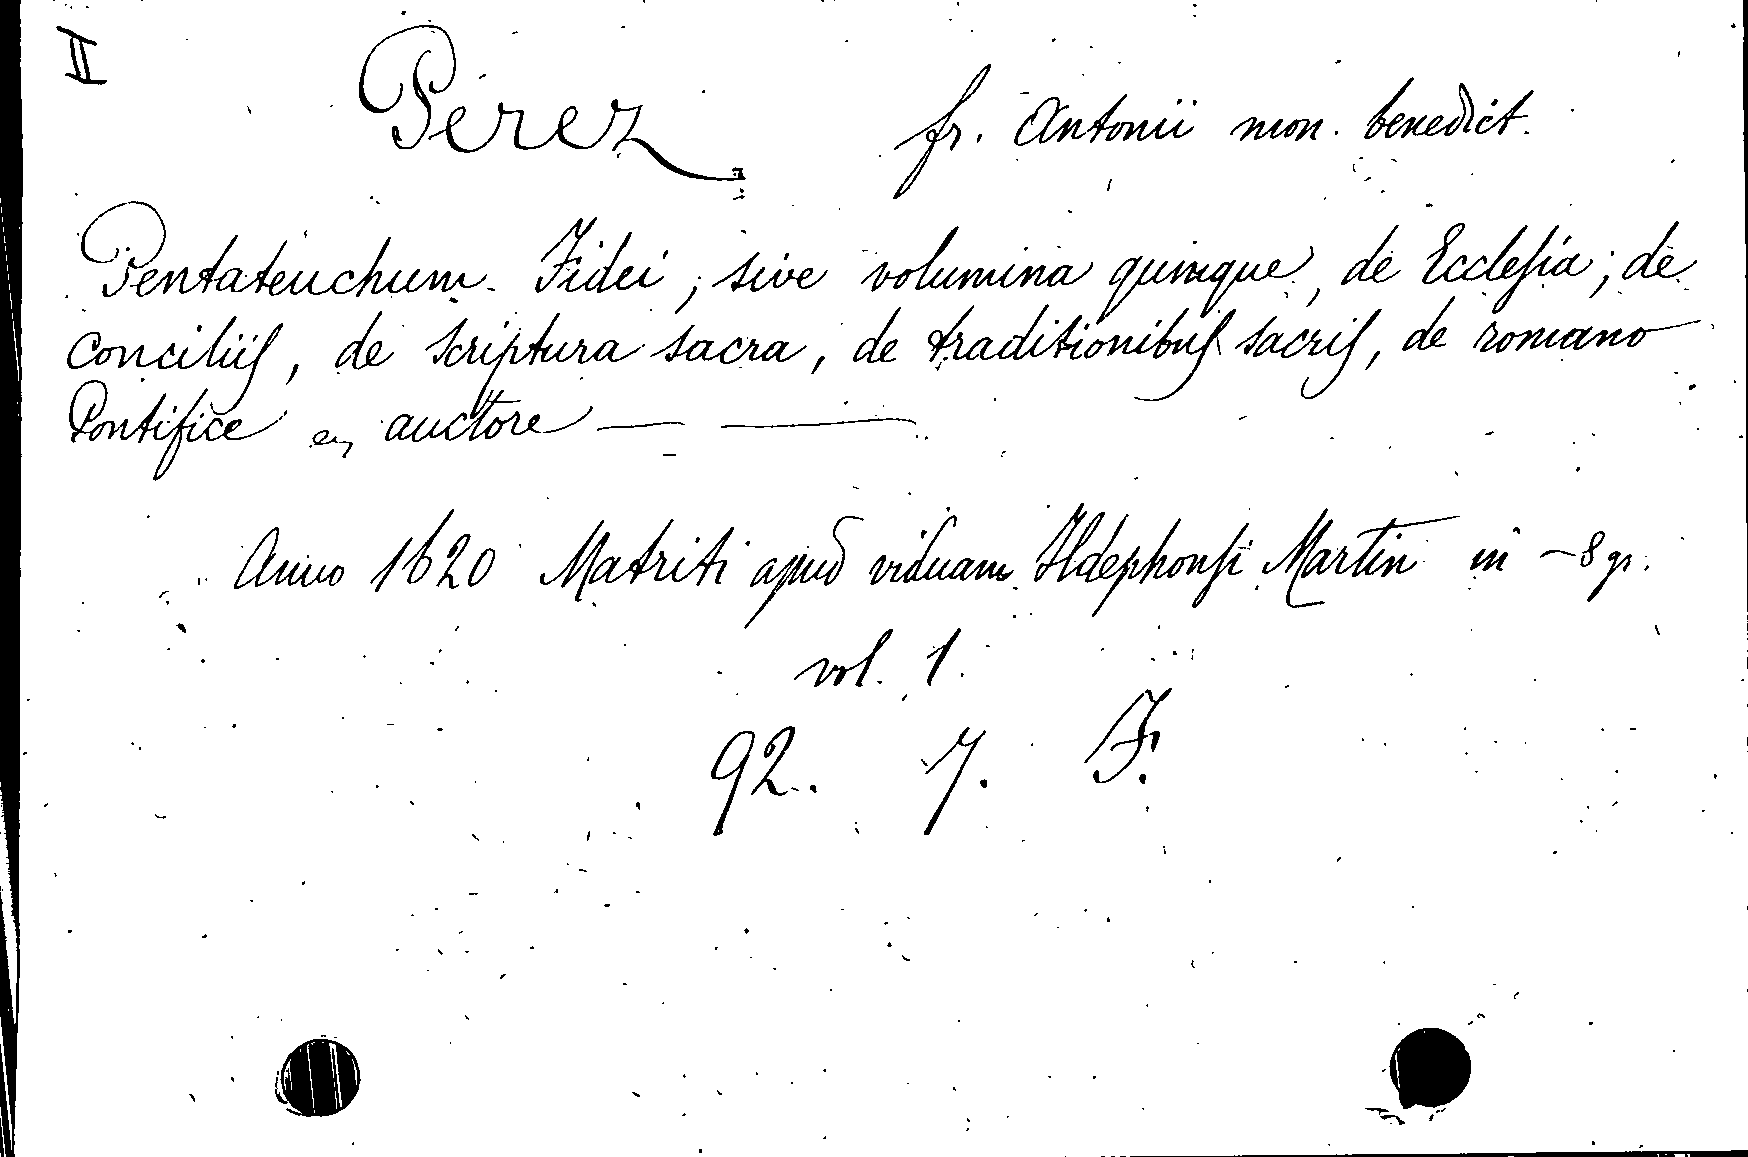 II
Perez fr. Antonii mon. benedict.
Pentateuchum Fidei, sive volumina quinque, de Ecclesia; de
conciliis, de scriptura sacra, de traditionibus sacris, de romano
Pontifice auctore — —
Anno 1620 Matriti apud viduam Ildephonsi Martin in -8 gr.
vol. 1.
92. 7. F.